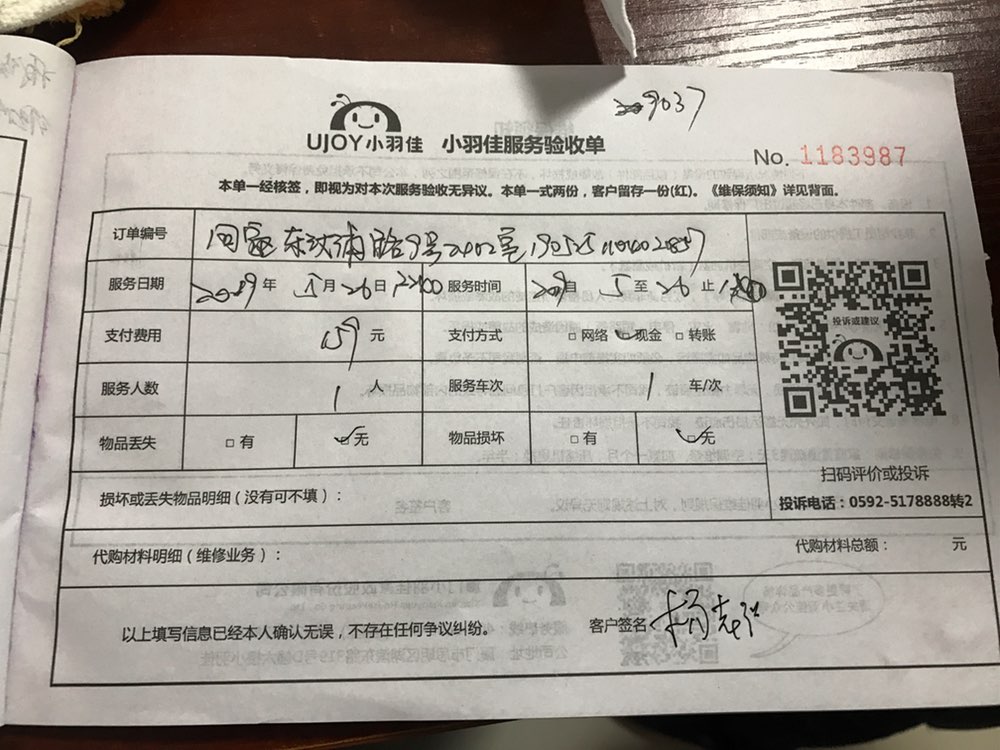 9037
UJOY小羽佳 小羽佳服务验收单
No. 1183987
本单一经核签，即视为对本次服务验收无异议。本单一式两份，客户留存一份(红)。《维保须知》详见背面。
订单编号 东浦路9号2402室
服务日期 2019年5月26日 服务时间 自5至26止
支付费用 159元 支付方式 □网络 ☑现金 □转账
投诉或建议
服务人数 1人 服务车次 1车/次
物品丢失 □有 ☑无 物品损坏 □有 ☑无
扫码评价或投诉
损坏或丢失物品明细（没有可不填）：
投诉电话：0592-5178888转2
代购材料明细（维修业务）： 代购材料总额： 元
以上填写信息已经本人确认无误，不存在任何争议纠纷。 客户签名